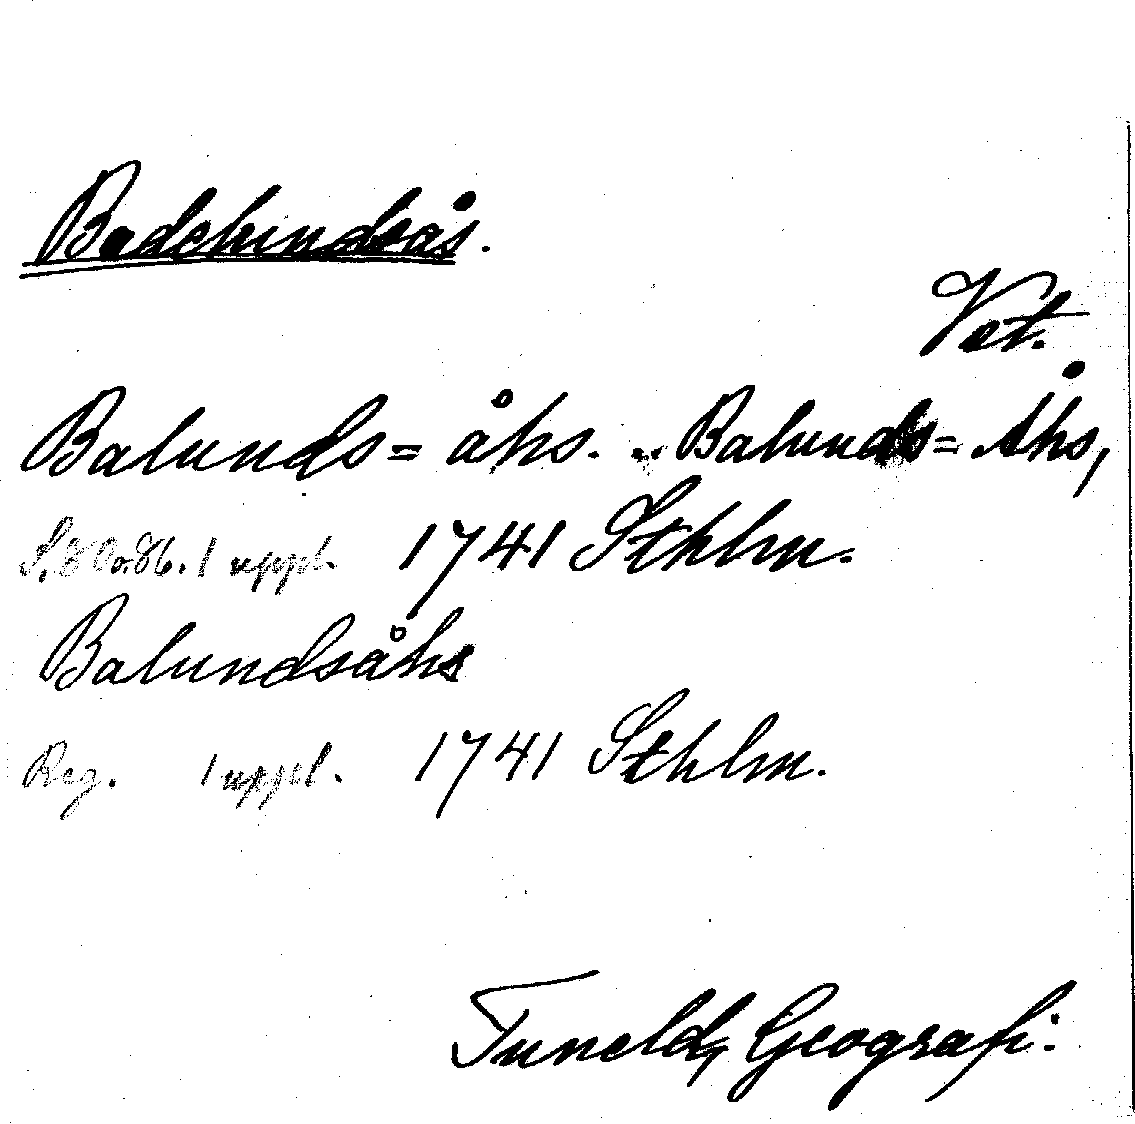 Badelundsås.
Vst.
Balunds= åhs. .. Balunds= Åhs,
1 uppl. 1741 Sthlm.
Balundsåhs
Reg. 1 uppl. 1741 Sthlm.
Tuneld, Geografi.